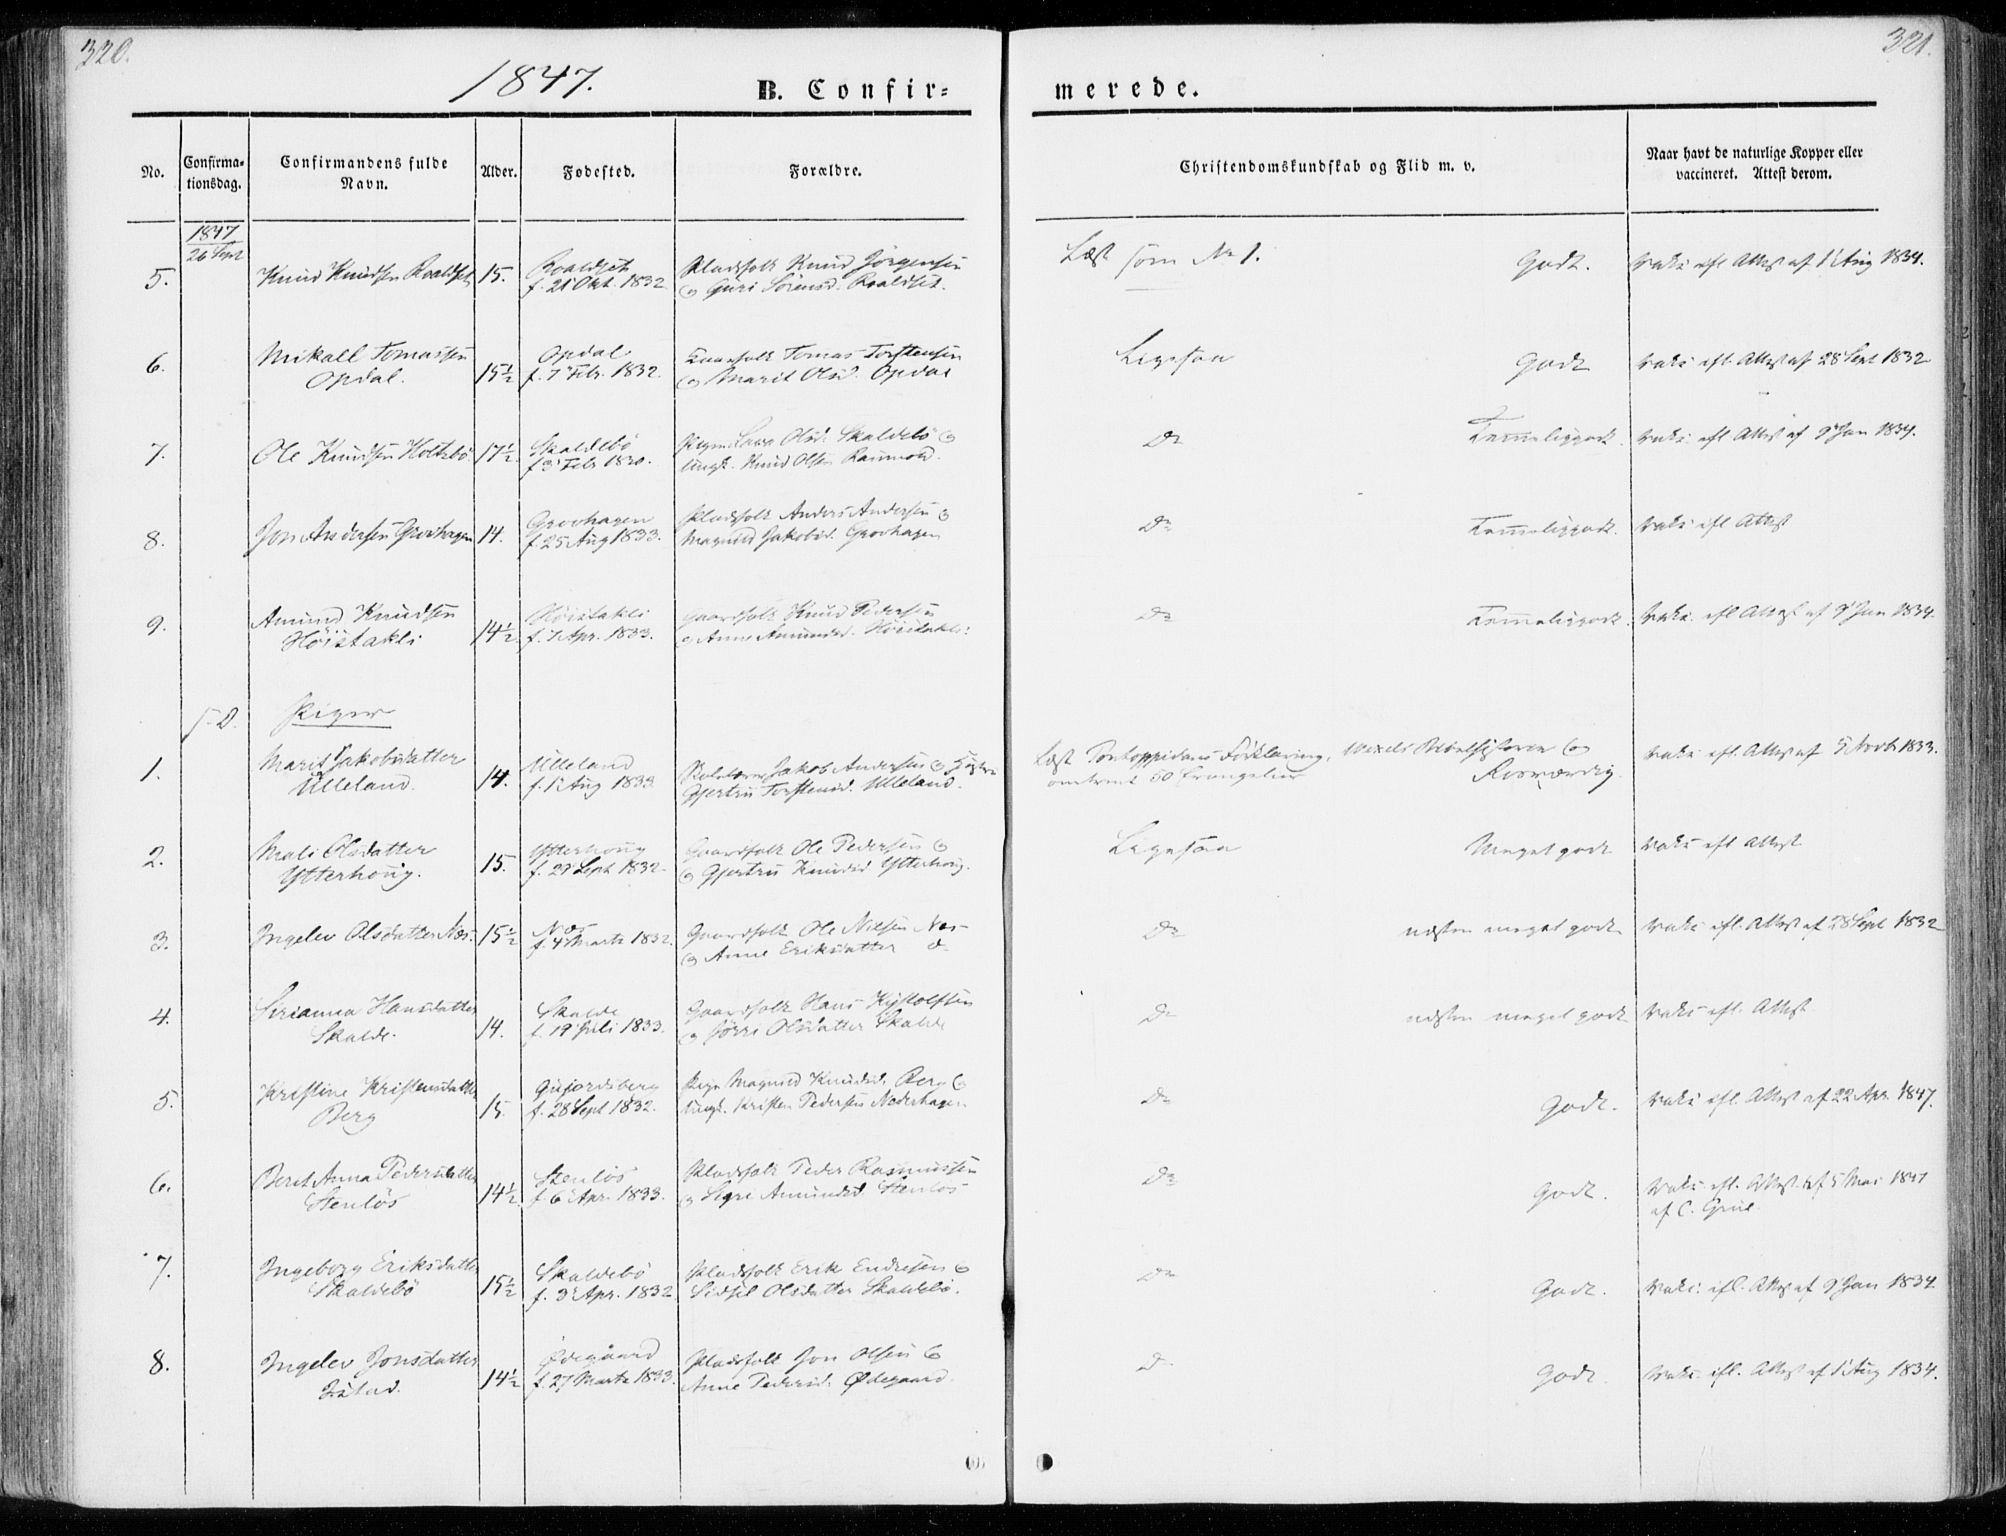 320.
321.
1847.
B. Confir=
merede.
No.
Confirma=
tionsdag.
Confirmandens fulde
Navn.
Alder.
Fødested.
Forældre.
Christendomskundskab og Flid m. v.
Naar havt de naturlige Kopper eller
vaccineret. Attest derom.
1847
26 Sept
5.
Knud Knudsen Roaldset
15.
Roaldset
f. 21 Okt. 1832
Pladsfolk Knud Jørgensen
og Guri Sørensd. Roaldset.
Læst som No 1.
Godt.
Vaks. efl. Attest af 1 Aug 1834.
6.
Mikall Tomassen
Opdal.
15½
Opdal
f. 7 Febr. 1832.
Tomas Torstensen
og Marit Olsd. Opdal
Ligesaa
Godt
Vaks. efl. Attest af 28 Sept 1832
7.
Ole Knudsen Holtebø
17½
Skaldebø
f. 3 Febr 1830.
Pigen Olsd. Skaldebø og
Ungk. Knud Olsen
Do
Temmelig godt.
Vaks. efl. Attest af 9 Jan 1834.
8.
Jon Andersen Grovhagen
14.
Grovhagen
f. 25 Aug 1833.
Pladsfolk Anders Andersen og
Magnild Jakobsd. Grovhagen
Do
Temmelig godt.
Vaks. efl. Attest
9.
Amund Knudsen
Höistakli
14½
Höistakli
f. 7 Apr. 1833.
Gaardfolk Knud Pedersen
og Anne Amundsd. Höistakli.
Do
Temmelig godt.
Vaks. efl. Attest af 9 Jan 1834.
s. D.
Piger
1.
Marit Jakobsdatter
Ulleland.
14.
Ulleland
f. 1 Aug 1833
Jakob Andersen og Hustru
Gjertru Torstensd. Ulleland.
Læst Pontoppidans Forklaring, Vexels Bibelhistorie og
omtrent 50 Evangelier
Rosværdig.
Vaks. efl. Attest af 5 Novb 1833.
2.
Mali Olsdatter
Ytterhoug.
15.
Ytterhoug
f. 29 Sept 1832
Gaardfolk Ole Pedersen og
og Gjertru Knudsd. Ytterhoug.
Ligesaa
Meget godt
Vaks. efl. Attest
3.
Ingelev Olsdatter Næs.
15½
Næs
f. 4 Marts 1832
Gaardfolk Ole Nilsen Næs
og Anne Eriksdatter Do
Do
næsten meget godt
Vaks. efl. Attest af 28 Sept 1832
4.
Serianna Hansdatter
Skalde.
14.
Skalde
f. 19 Juli 1833.
Gaardfolk Hans
og Jørri Olsdatter Skalde
Do
næsten meget godt
Vaks. efl. Attest
5.
Kristine Kristensdatter
Berg
15.
Gujordsberg
f. 28 Sept 1832.
Pige Magnild Knudsd. Berg og
Ungk. Kristen Pedersen Nederhagen
Do
Godt.
Vaks. efl. Attest af 22 Apr. 1847.
6.
Beret Anna Pedersdatter
Stenlös
14½
Stenlös
f. 6 Apr. 1833.
Pladsfolk Peder Rasmussen
og Sigre Amundsd. Stenlös
Do
Godt.
Vaks. efl. Attest af 5 Mai 1847
af C. Grue
7.
Ingeborg Eriksdatter
Skaldebö
15½
Skaldebö
f. 3 Apr. 1832
Pladsfolk Erik Endresen og
Sidsel Olsdatter Skaldebö.
Do
Godt.
Vaks. efl. Attest af 9 Jan 1834.
8.
Ingelev Jonsdatter
14½
Ødegaard
f. 27 Marts 1833.
Pladsfolk Jon Olsen og
Anne Pedersd. Ødegaard.
Do
Godt.
Vaks. efl. Attest af 1 Aug 1834.